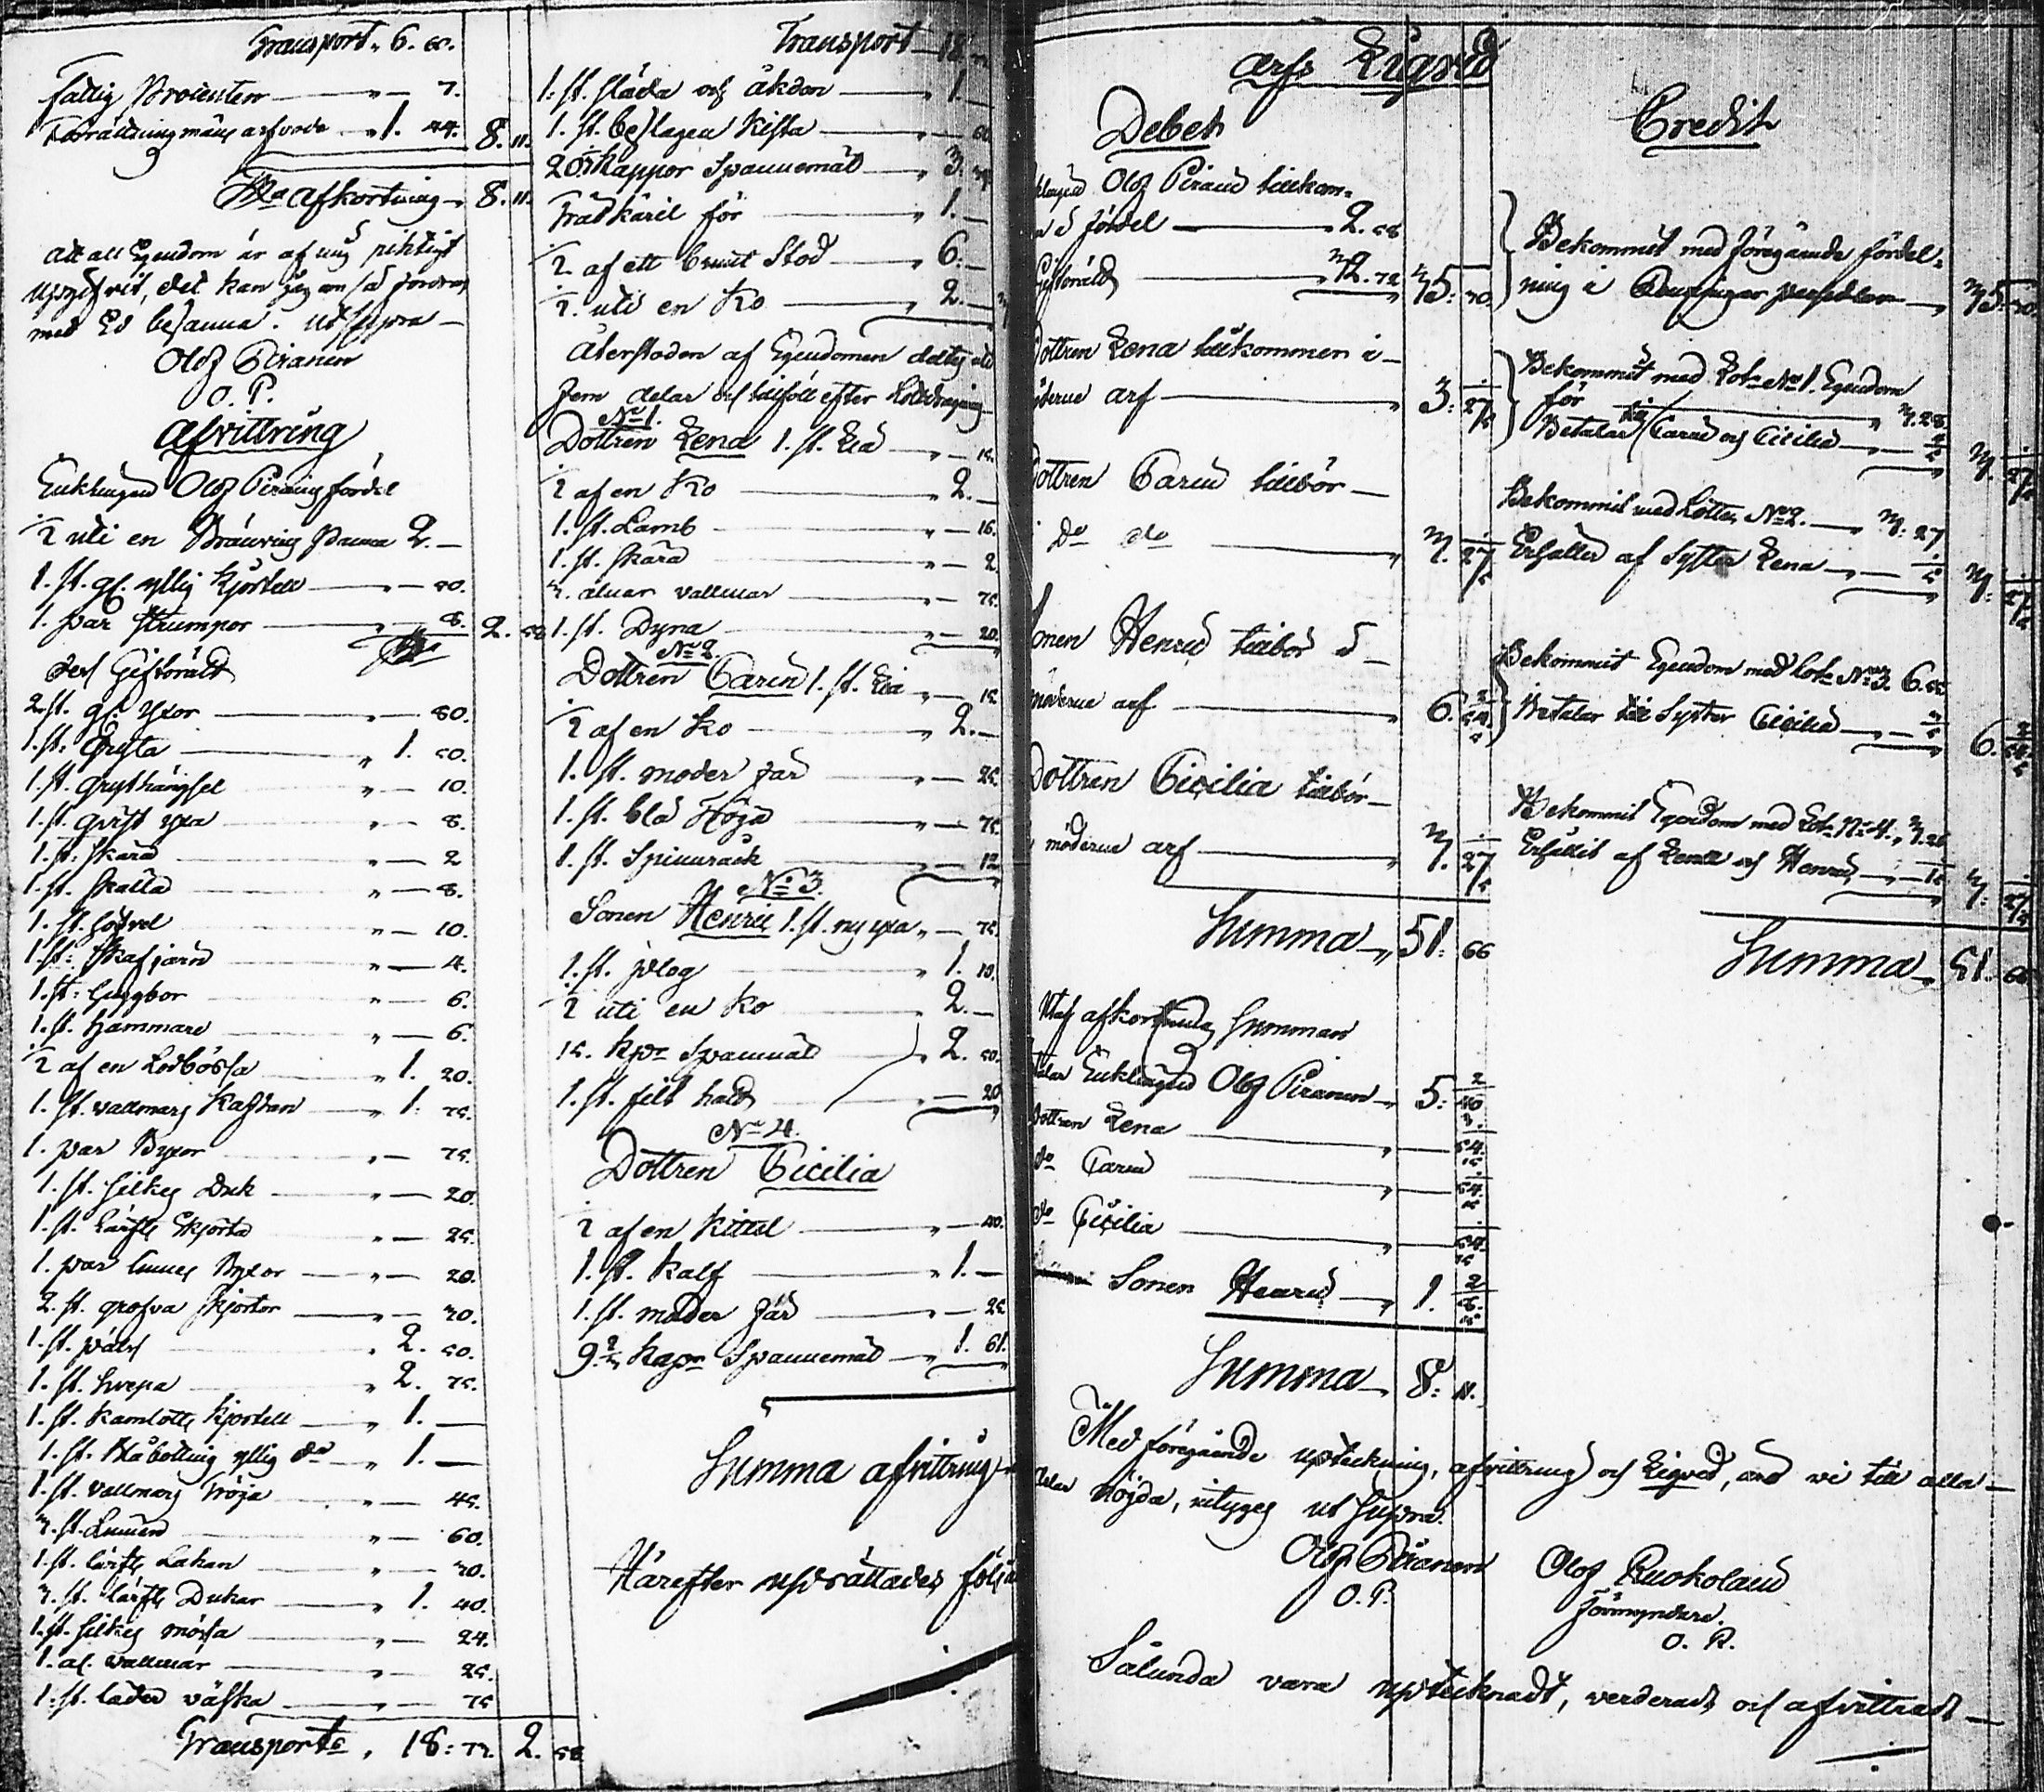 Transport „ 6. 60.
Fattig Procenten „ — 7.
Förrättningsmäns arfvode „ 1. 44. 8. 11.
Sma afkortning „ 8. 11.
Att all Egendom är af mig richtigt
upgifvit, det kan jag om så fordras
med Ed besanna. Ut supra —
Olof Piranen
O. P.
Afvittring
Enklingen Olof Piranens fördel
1/2 uti en Bränvins Panna 2. —
1. st. gl. yllig kjortell „ — 50.
1. par strumpor „ — 8. 2. 58
dess Giftorätt
2. st. gl. yxor „ — 80.
1. st. Gryta „ 1. 50.
1. st. grythängsel „ — 10.
1. st. qvist yxa „ — 8.
1. st. skära „ — 2
1. st. skålla „ — 8.
1. st. höfvel „ — 10.
1. st. skafjärn „ — 4.
1. st. huggbor „ — 6.
1. st. hammare „ — 6.
1/2 af en Lodbössa „ 1. 20.
1. st. vallmars Kaftan „ 1. 75.
1. par Byxor „ — 75.
1. st. silkes Duk „ — 20.
1. st. Lärfts skjorta „ — 25.
1. par linnes Byxor „ — 20.
2. st. grofva skjortor „ — 30.
1. st. päls „ 2. 50.
1. st. hvepa „ 2. 75.
1. st. kamlotts kjortell „ 1. —
1. st. Blåbotting yllig do „ 1. —
1. st. vallmars tröja „ — 45.
3. st. Linnen „ — 60.
1. st. lärfts Lakan „ — 30.
3. st. lärfts Dukar „ 1. 40.
1. st. silkes mössa „ — 24.
1. al. vallmar „ — 25.
1. st. läder väska „ — 75
Transport „ 18: 72. 2. 58
Transport 18
1. st. släda och åkdon „ 1. —
1. st. beslagen Kista „ — 60.
20 Kappor Spannemål „ 3.
Trädkäril för „ 1. —
1/2 af ett brunt Stod „ 6. —
1/2 uti en Ko „ 2. —
Återstoden af Egendomen
fem delar och tillföll efter lottdragning
No 1.
Dottren Lena 1. st. Lia „ — 15.
1/2 af en Ko „ 2. —
1. st. Lamb „ — 16.
1. st. skära „ — 2
3. alnar vallmar „ — 75.
1. st. Dyna „ — 20.
No 2.
Dottren Carin 1. st. Lia „ — 15
1/2 af en Ko „ 2. —
1. st. moder får „ — 25.
1. st. blå Tröja „ — 75.
1. st. Spinnråck „ — 12
No 3.
Sonen Henric 1. st. ny yxa „ — 75
1. st. plog „ 1. 10.
1/2 uti en Ko „ 2. —
15. kpr Spannmål „ 2. 50.
1. st. filt hatt „ — 20
No 4.
Dottren Cicilia
1/2 af en Kittel „ — 40.
1. st. Kalf „ 1. —
1. st. moder får „ — 25.
9. 2/3 kapr Spannemål „ 1. 61.
Summa afvittring
Härefter uprättades följ
Arfs Liqvid
Debet
Olof Piranen tillkom-
fördel „ 2. 58
Giftorätt „ 32. 72 35: 30.
Dottren Lena tillkommer i —
möderne arf „ 3: 27/5
Dottren Carin tillbör —
i Do do „ 3. 27/5
Sonen Henric tillbör i —
möderne arf „ 6. 54
Dottren Cicilia tillbör —
i möderne arf „ 3. 27/5
Summa „ 51: 66
Utaf afkortnings Summan
Enklingen Olof Piranen „ 5: 40
Dottren Lena „ 54
do Carin „ 54
do Cicilia „ 54
Sonen Henric „ 1. 8
Summa „ 8: 11.
Credit
Bekommit med föregående fördel-
ning i persedlar „ 35: 30
Bekommit med Lott No 1. Egendom
för „ 3. 28
Betalar till Carin och Cicilia „ 3. 27/5
Bekommit med Lotten No 2. „ 3: 27
Erhåller af Syster Lena „ 3: 27/5
Bekommit Egendom med lott No 3. 6. 55
Betalar till Syster Cicilia „ 6.
Bekommit Egendom med Lott No 4. „ 3. 26
Erhållit af Lena och Henric „ 3: 27/5
Summa „ 51. 66
Med föregående upteckning, afvittring och Liqvid, äro vi till alla —
delar nöjda, intyges ut Supra.
Olof Piranen
O. P.
Olof Ruokolain
Förmyndare.
O. R.
Sålunda vara uptecknadt, verderadt och afvittradt —